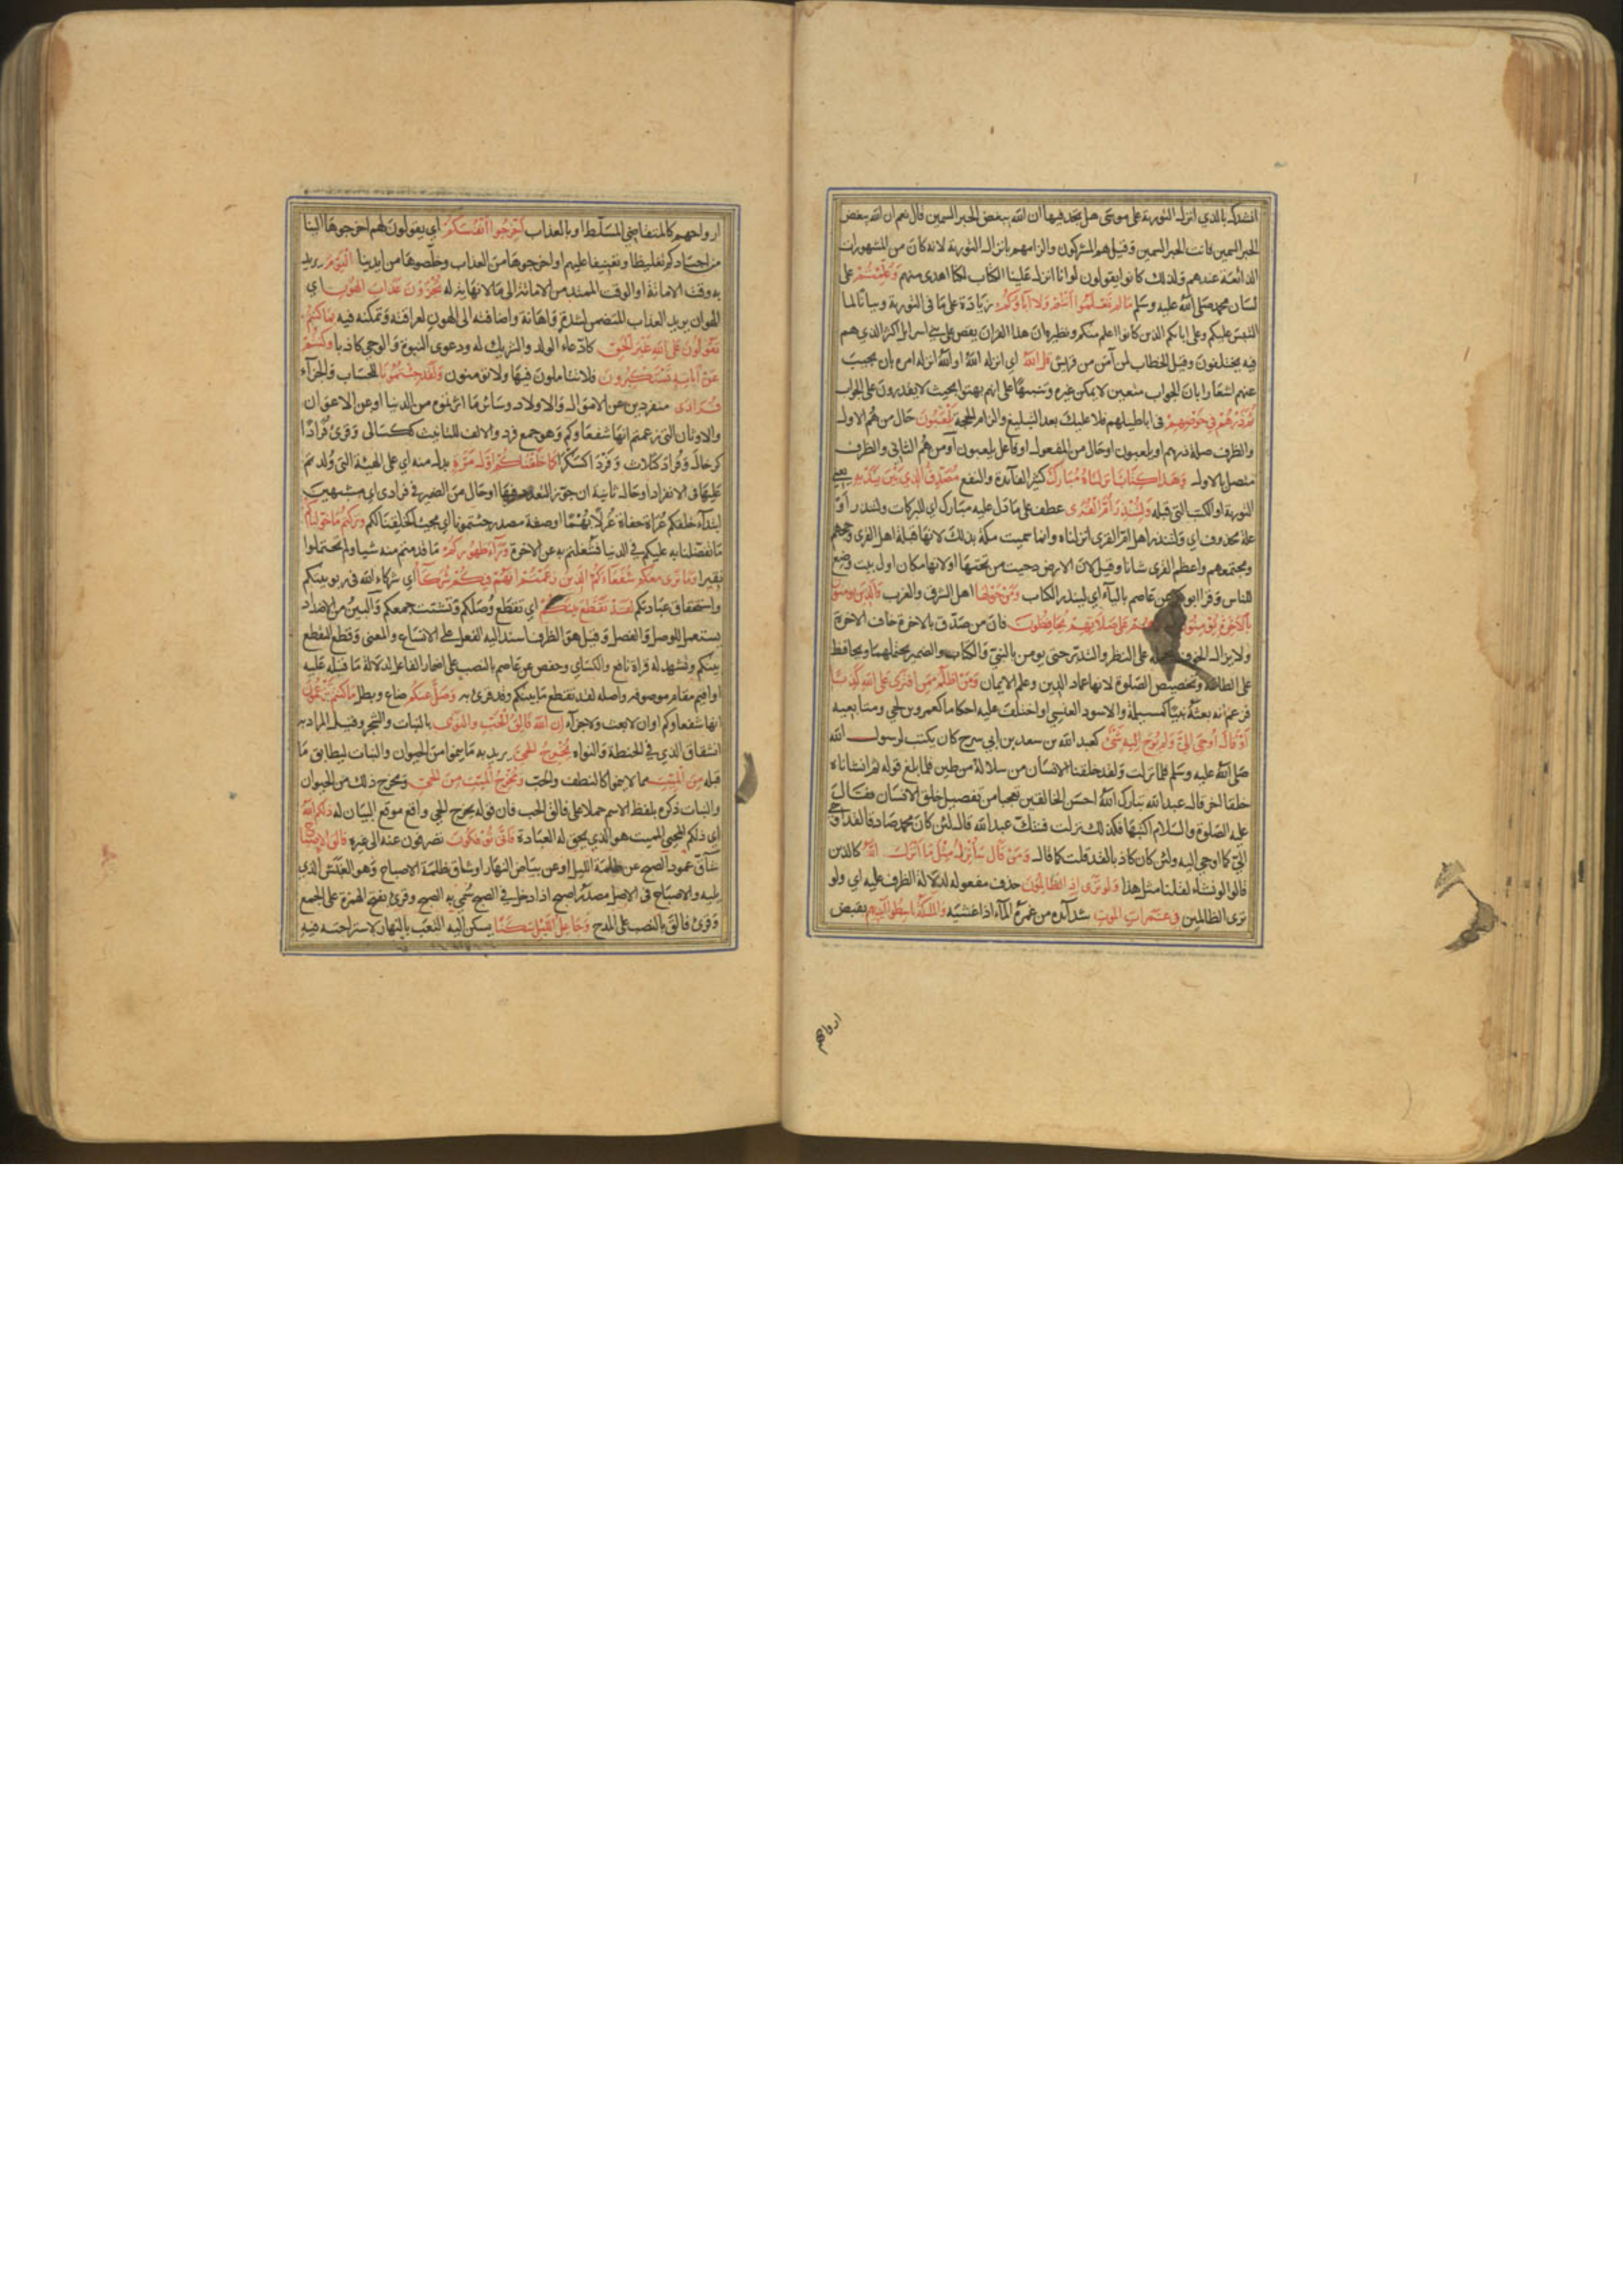 انشدك بالذي انزل التورية على موسى هل تجد فيها ان الله يبغض الحبر السمين قال نعم ان الله يبغض
الحبر السمين فانت الحبر السمين وقيل هم المشركون والزامهم بانزال التورية لانه كان من المشهورات
الذائعة عندهم ولذلك كانوا يقولون لو انا انزل علينا الكتاب لكنا اهدى منهم وَعُلِّمْتُمْ على
لسان محمد صلى الله عليه وسلم مَا لَمْ تَعْلَمُوا أَنْتُمْ وَلا آباؤكُمْ زيادة على ما في التورية وبيانا لما
التبس عليكم وعلى ابائكم الذين كانوا اعلم منكم ونظيره ان هذا القران يقص على بني اسرايل اكثر الذي هم
فيه يختلفون وقيل الخطاب لمن آمن من قريش قل الله اي انزله الله او الله انزله امره بان يجيب
عنهم اشعارا بان الجواب متعين لا يمكن غيره وتنبيها على انهم بهتوا بحيث لا يقدرون على الجواب
ثُمَّ ذَرْهُمْ فِي خَوْضِهِمْ في اباطيلهم فلا عليك بعد التبليغ والزام الحجة يَلْعَبُونَ حال من هم الاول
والظرف صلة ذرهم او يلعبون او حال من المفعول او فاعل يلعبون او من هم الثاني والظرف
متصل بالاول وَهَذَا كِتَابٌ أَنْزَلْنَاهُ مُبَارَكٌ كثير الفائدة والنفع مُصَدِّقُ الَّذِي بَيْنَ يَدَيْهِ يعني
التورية او الكتب التي قبله وَلِتُنْذِرَ أُمَّ الْقُرَى عطف على ما دل عليه مبارك اي للبركات ولتنذر او
علة محذوف اي ولتنذر اهل ام القرى انزلناه وانما سميت مكة بذلك لانها قبلة اهل القرى ومحجهم
ومجتمعهم واعظم القرى شانا وقيل لان الارض دحيت من تحتها او لانها مكان اول بيت وضع
للناس وقرا ابو بكر عن عاصم بالياء اي لينذر الكتاب وَمَنْ حَوْلَهَا اهل الشرق والغرب وَالَّذِينَ يُؤْمِنُونَ
بِالآخِرَةِ يُؤْمِنُونَ عَلَى صَلاتِهِمْ يُحَافِظُونَ فان من صدق بالاخرة خاف الاخرة
ولا يزال الخوف يحمله على النظر والتدبر حتى يومن بالنبي والكتاب والضمير يحتملهما ويحافظ
على الطاعة وتخصيص الصلوة لانها عماد الدين وعلم الايمان وَمَنْ أَظْلَمُ مِمَّنِ افْتَرَى عَلَى اللهِ كَذِبًا
فزعم انه بعثه نبيا كمسيلمة والاسود العنسي او اختلق عليه احكاما كعمرو بن لحي ومتابعيه
أَوْ قَالَ أُوحِيَ إِلَيَّ وَلَمْ يُوحَ إِلَيْهِ شَيْءٌ كعبد الله بن سعد بن ابي سرح كان يكتب لرسول الله
صلى الله عليه وسلم فلما نزلت ولقد خلقنا الانسان من سلالة من طين فلما بلغ قوله ثم انشاناه
خلقا اخر قال عبد الله تبارك الله احسن الخالقين تعجبا من تفصيل خلق الانسان فقال
عليه الصلوة والسلام اكتبها فكذلك نزلت فشك عبد الله قال لئن كان محمد صادقا لقد اوحي
الي كما اوحي اليه ولئن كان كاذبا لقد قلت كما قال وَمَنْ قَالَ سَأُنْزِلُ مِثْلَ مَا أَنْزَلَ اللهُ كالذين
قالوا لو نشاء لقلنا مثل هذا وَلَوْ تَرَى إِذِ الظَّالِمُونَ حذف مفعوله لدلالة الظرف عليه اي ولو
ترى الظالمين فِي غَمَرَاتِ الْمَوْتِ شدائده من غمره الماء اذا غشيه وَالْمَلائِكَةُ بَاسِطُوا أَيْدِيهِمْ بقبض
ارواحهم
ارواحهم كالمتقاضي المسلط او بالعذاب أَخْرِجُوا أَنْفُسَكُمْ اي يقولون لهم اخرجوها الينا
من اجسادكم تغليظا وتعنيفا عليهم او اخرجوها من العذاب وخلصوها من ايدينا الْيَوْمَ يريد
به وقت الاماتة او الوقت الممتد من الاماتة الى ما لا نهاية له تُجْزَوْنَ عَذَابَ الْهُونِ اي
الهوان يريد العذاب المتضمن لشدة واهانة واضافته الى الهون لعراقته وتمكنه فيه بِمَا كُنْتُمْ
تَقُولُونَ عَلَى اللهِ غَيْرَ الْحَقِّ كادعاء الولد والشريك له ودعوى النبوة والوحي كاذبا وَكُنْتُمْ
عَنْ آيَاتِهِ تَسْتَكْبِرُونَ فلا تتاملون فيها ولا تؤمنون وَلَقَدْ جِئْتُمُونَا للحساب والجزاء
فُرَادَى منفردين عن الاموال والاولاد وسائر ما اثرتموه من الدنيا او عن الاعوان
والاوثان التي زعمتم انها شفعاؤكم وهو جمع فرد والالف للتانيث ككسالى وقرئ فُرَادًا
كرخال وفُرَادَ كثلاث وفَرْدَى كسكرى كَمَا خَلَقْنَاكُمْ أَوَّلَ مَرَّةٍ بدل منه اي على الهيئة التي ولدتم
عليها في الانفراد او حال ثانية ان جوز التعدد فيها او حال من الضمير في فرادى اي مشبهين
ابتداء خلقكم عُراة حفاة غُرلا بُهما او صفة مصدر جئتمونا اي مجيئا كخلقنا لكم وَتَرَكْتُمْ مَا خَوَّلْنَاكُمْ
ما تفضلنا به عليكم في الدنيا فشغلتم به عن الاخرة وَرَاءَ ظُهُورِكُمْ ما قدمتم منه شيا ولم تحتملوا
نقيرا وَمَا نَرَى مَعَكُمْ شُفَعَاءَكُمُ الَّذِينَ زَعَمْتُمْ أَنَّهُمْ فِيكُمْ شُرَكَاءُ اي شركاء الله في ربوبيتكم
واستحقاق عبادتكم لَقَدْ تَقَطَّعَ بَيْنَكُمْ اي تقطع وُصَلكم وتشتت جمعكم والبين من الاضداد
يستعمل للوصل والفصل وقيل هو الظرف اسند اليه الفعل على الاتساع والمعنى وقع التقطع
بينكم وتشهد له قراة نافع والكساي وحفص عن عاصم بالنصب على اضمار الفاعل لدلالة ما قبله عليه
او اقيم مقام موصوفه واصله لقد تقطع ما بينكم وقد قرئ به وَضَلَّ عَنْكُمْ ضاع وبطل مَا كُنْتُمْ تَزْعُمُونَ
انها شفعاؤكم او ان لا بعث ولا جزاء إِنَّ اللهَ فَالِقُ الْحَبِّ وَالنَّوَى بالنبات والشجر وقيل المراد به
الشقاق الذي في الحنطة والنواة يُخْرِجُ الْحَيَّ يريد به ما ينمو من الحيوان والنبات ليطابق ما
قبله مِنَ الْمَيِّتِ مما لا ينمو كالنطف والحب وَمُخْرِجُ الْمَيِّتِ مِنَ الْحَيِّ ومخرج ذلك من الحيوان
والنبات ذكره بلفظ الاسم حملا على فالق الحب فان قوله يخرج الحي واقع موقع البيان له ذَلِكُمُ اللهُ
اي ذلكم المحيي المميت هو الذي يحق له العبادة فَأَنَّى تُؤْفَكُونَ تصرفون عنه الى غيره فَالِقُ الإِصْبَاحِ
شاق عمود الصبح عن ظلمة الليل او عن بياض النهار او شاق ظلمة الاصباح وهو الغبش الذي
يليه والاصباح في الاصل مصدر اصبح اذا دخل في الصبح سُمي به الصبح وقرئ بفتح الهمزة على الجمع
وقرئ فالق بالنصب على المدح وَجَاعِلُ اللَّيْلِ سَكَنًا يسكن اليه التعب بالنهار لاستراحته فيه